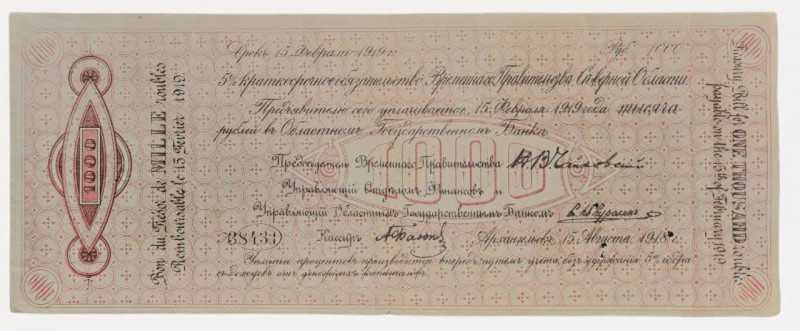 Срокъ 15 Февраля 1919 г.
Руб. 1000
5% краткосрочное обязательство Временнаго Правительства Сѣверной Области
Предъявителю сего уплачивается 15 Февраля 1919 года тысяча
рублей въ Областномъ Государственномъ Банкѣ.
Предсѣдатель Временнаго Правительства Н.В.Чайковскій
Управляющій Отдѣломъ Финансовъ и
Управляющій Областнымъ Государственнымъ Банкомъ
38433
Кассиръ
Архангельскъ 15 Августа 1918 г.
Уплата процентовъ производится впередъ путемъ учета, безъ удержанія 5% сбора
съ доходовъ отъ денежныхъ капиталовъ.
1000
1000
Bon du Trésor de MILLE roubles
Remboursable le 15 Février 1919.
Treasury Bill for ONE THOUSAND roubles
payable on the 15th of February 1919